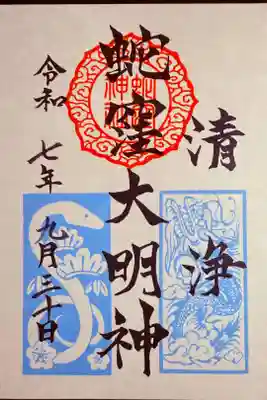 清浄
蛇窪大明神
令和七年九月三十日